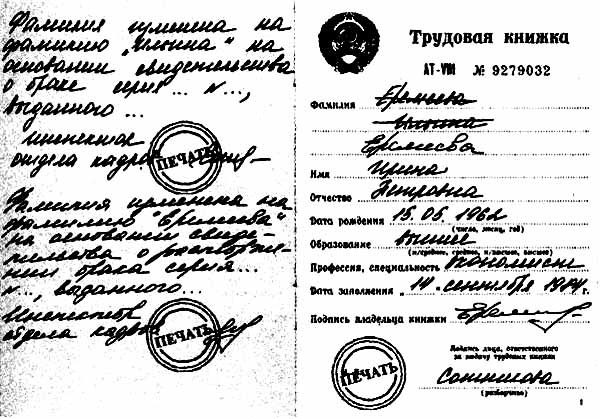 Фамилия изменена на
фамилию „Ильина" на
основании свидетельства
о браке серия ... № ...,
выданного ...
Инспектор
отдела кадров
ПЕЧАТЬ
Фамилия изменена на
фамилию "Еремеева"
на основании свиде-
тельства о расторже-
нии брака серия...
№..., выданного...
Инспектор
отдела кадров
ПЕЧАТЬ
Трудовая книжка
АТ-VIII № 9279032
Фамилия Еремеева
Ильина
Еремеева
Имя Ирина
Отчество Петровна
Дата рождения 15.05.1962
(число, месяц, год)
Образование высшее
(н/среднее, среднее, н/высшее, высшее)
Профессия, специальность экономист
Дата заполнения „14" сентября 1984 г.
Подпись владельца книжки
Подпись лица, ответственного
за выдачу трудовых книжек
ПЕЧАТЬ
(разборчиво)
1